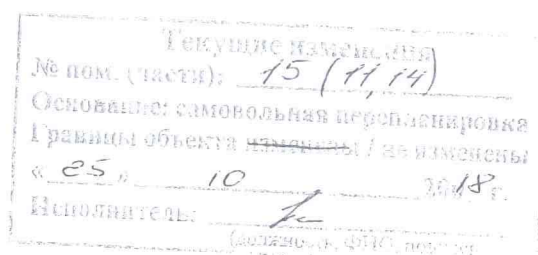 Текущие изменения
№ пом. (части): 15 (11, 14)
Основание: самовольная перепланировка
Границы объекта изменены / не изменены
« 25 » 10 2018 г.
Исполнитель:
(должность, ФИО, подпись